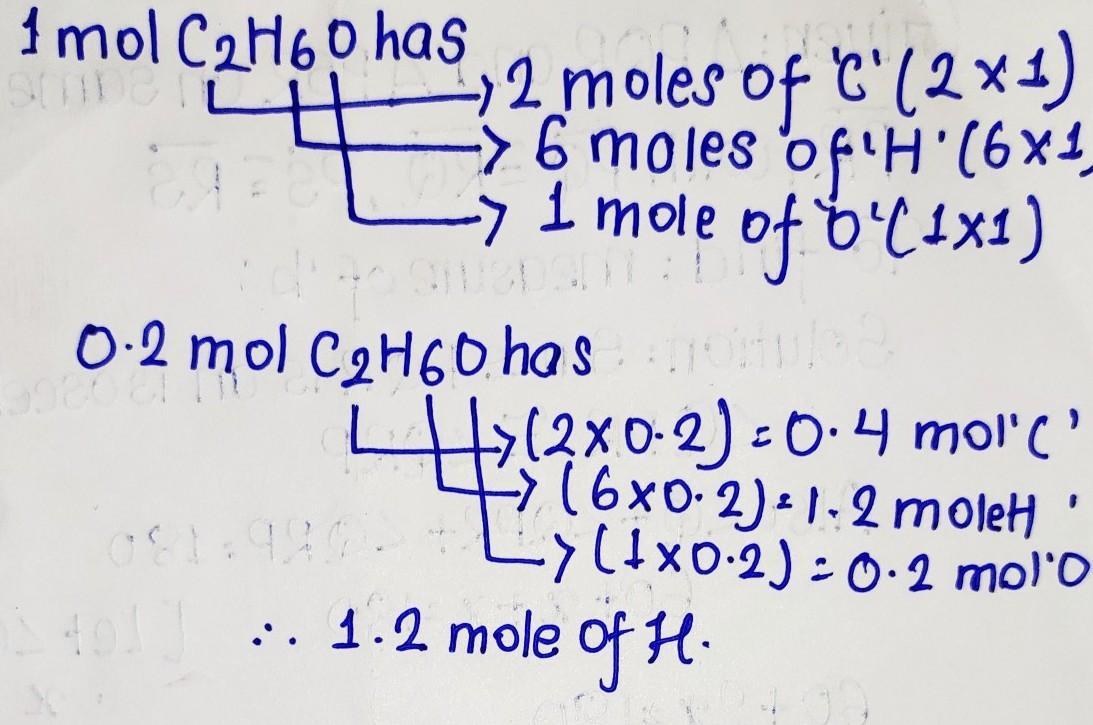 1 mol C2H6O has
2 moles of 'C' (2×1)
6 moles of 'H' (6×1)
1 mole of 'O' (1×1)
0.2 mol C2H6O has
(2×0.2) = 0.4 mol 'C'
(6×0.2) = 1.2 mole H '
(1×0.2) = 0.2 mol 'O
∴ 1.2 mole of H.